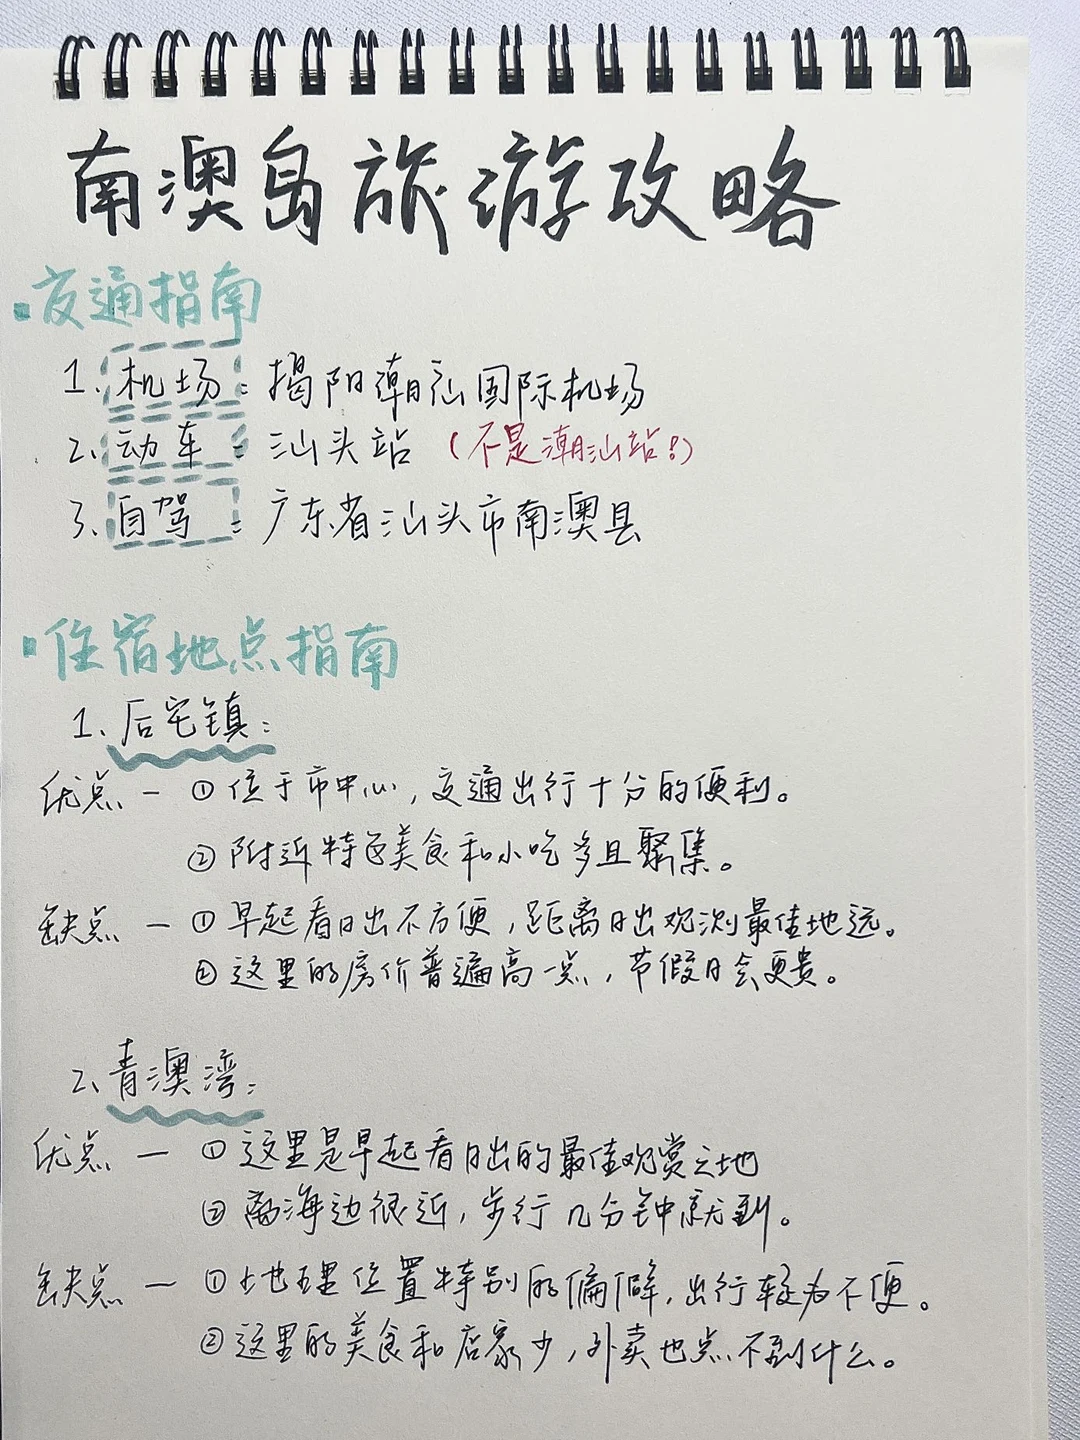 南澳岛旅游攻略
交通指南
1、机场：揭阳潮汕国际机场
2、动车：汕头站（不是潮汕站！）
3、自驾：广东省汕头市南澳县
住宿地点指南
1、后宅镇：
优点 — ① 位于市中心，交通出行十分的便利。
② 附近特色美食和小吃多且聚集。
缺点 — ① 早起看日出不方便，距离日出观测最佳地远。
② 这里的房价普遍高一点，节假日会更贵。
2、青澳湾：
优点 — ① 这里是早起看日出的最佳观赏之地
② 离海边很近，步行几分钟就到。
缺点 — ① 地理位置特别的偏僻，出行较为不便。
② 这里的美食和店家少，外卖也点不到什么。